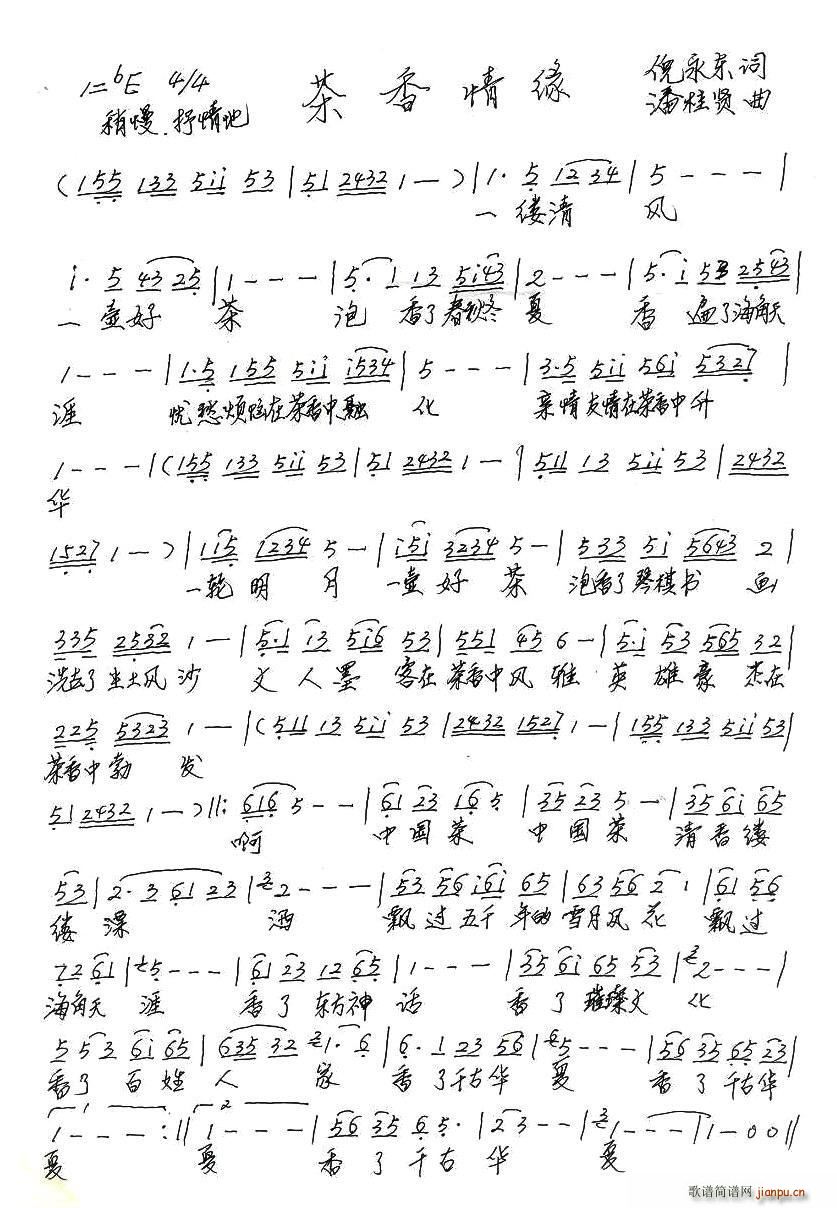 1=♭E 4/4 茶香情缘 倪永东词
稍慢.抒情地 潘桂贤曲
(155 133 5ii 53 | 51 2432 1 — ) | 1· 5 12 34 | 5 - - - |
一 缕清 风
i· 5 43 25 | 1 - - - | 5· 1 13 5i43 | 2 - - - | 5· i 53 2543 |
一 壶好 茶 泡 香了 春秋冬 夏 香 遍了海角天
1 - - - | 1·5 155 5ii i534 | 5 - - - | 3·5 5ii 56i 5327 |
涯 忧愁烦恼在茶香中融 化 亲情友情在茶香中升
1 - - - | (155 133 5ii 53 | 51 2432 1 — | 511 13 5ii 53 | 2432
华
1527 1 — ) | 1i5 1234 5 — | i5i 3234 5 — | 533 5i 5643 2 |
一轮 明 月 一壶 好 茶 泡香了 琴棋书 画
335 2532 1 — | 5·1 13 5i6 53 | 551 45 6 — | 5·i 53 565 32 |
洗去了 尘土风 沙 文 人 墨 客在 茶香中风 雅 英 雄豪 杰在
225 5323 1 — | (511 13 5ii 53 | 2432 1527 1 — | 155 133 5ii 53 |
茶香中勃 发
51 2432 1 — ) ‖: 616 5 - - | 61 23 16 5 | 35 23 5 — | 35 6i 65
啊 中 国 茶 中 国 茶 清 香 缕
53 | 2·3 61 23 | 2 - - - | 53 56 i6i 65 | 63 56 2 · | 61 56
缕 洒 飘 过 五千 年的 雪月风 花 飘过
72 61 | 5 - - - | 61 23 12 65 | 1 - - - | 35 6i 65 53 | 2 - - - |
海角天 涯 香 了 东方神 话 香 了 璀璨文 化
5 53 6i 65 | 635 32 1· 6 | 6·1 23 56 | 5 - - - | 56 35 65 23 |
香了 百 姓 人 家 香 了千古华 夏 香 了 千古华
1 2
1 - - - :‖ 1 - - - | 56 35 6 5· | 23 - - | 1 - - - | 1 - 0 0 ‖
夏 夏 香 了 千 古 华 夏
歌谱简谱网 jianpu.cn